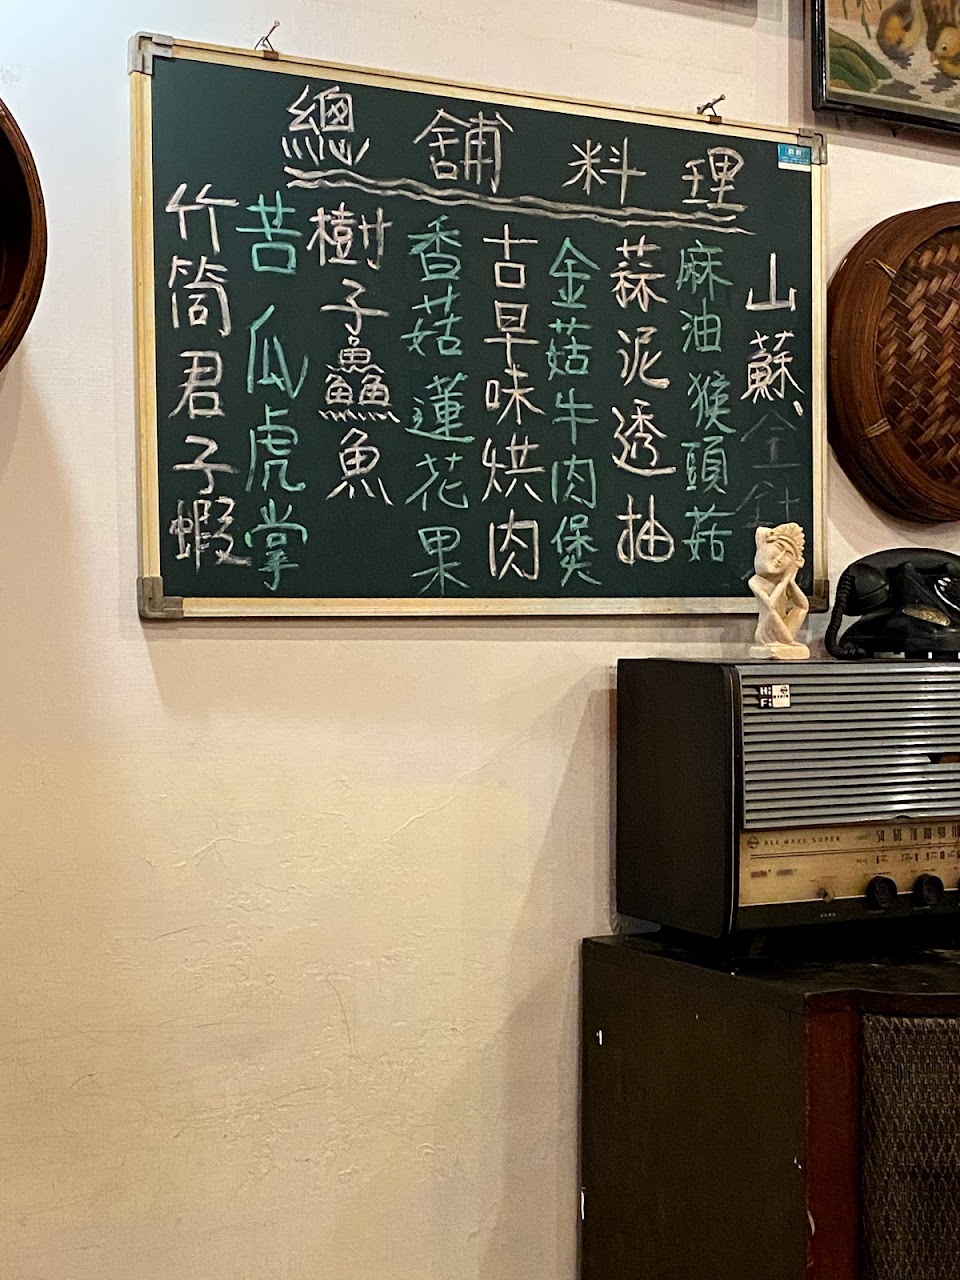 總舖料理
山蘇、金針
麻油猴頭菇
蒜泥透抽
金菇牛肉煲
古早味烘肉
香菇蓮花果
樹子鱻魚
苦瓜虎掌
竹筒君子蝦
Hi Fi
ALL WAVE SUPER